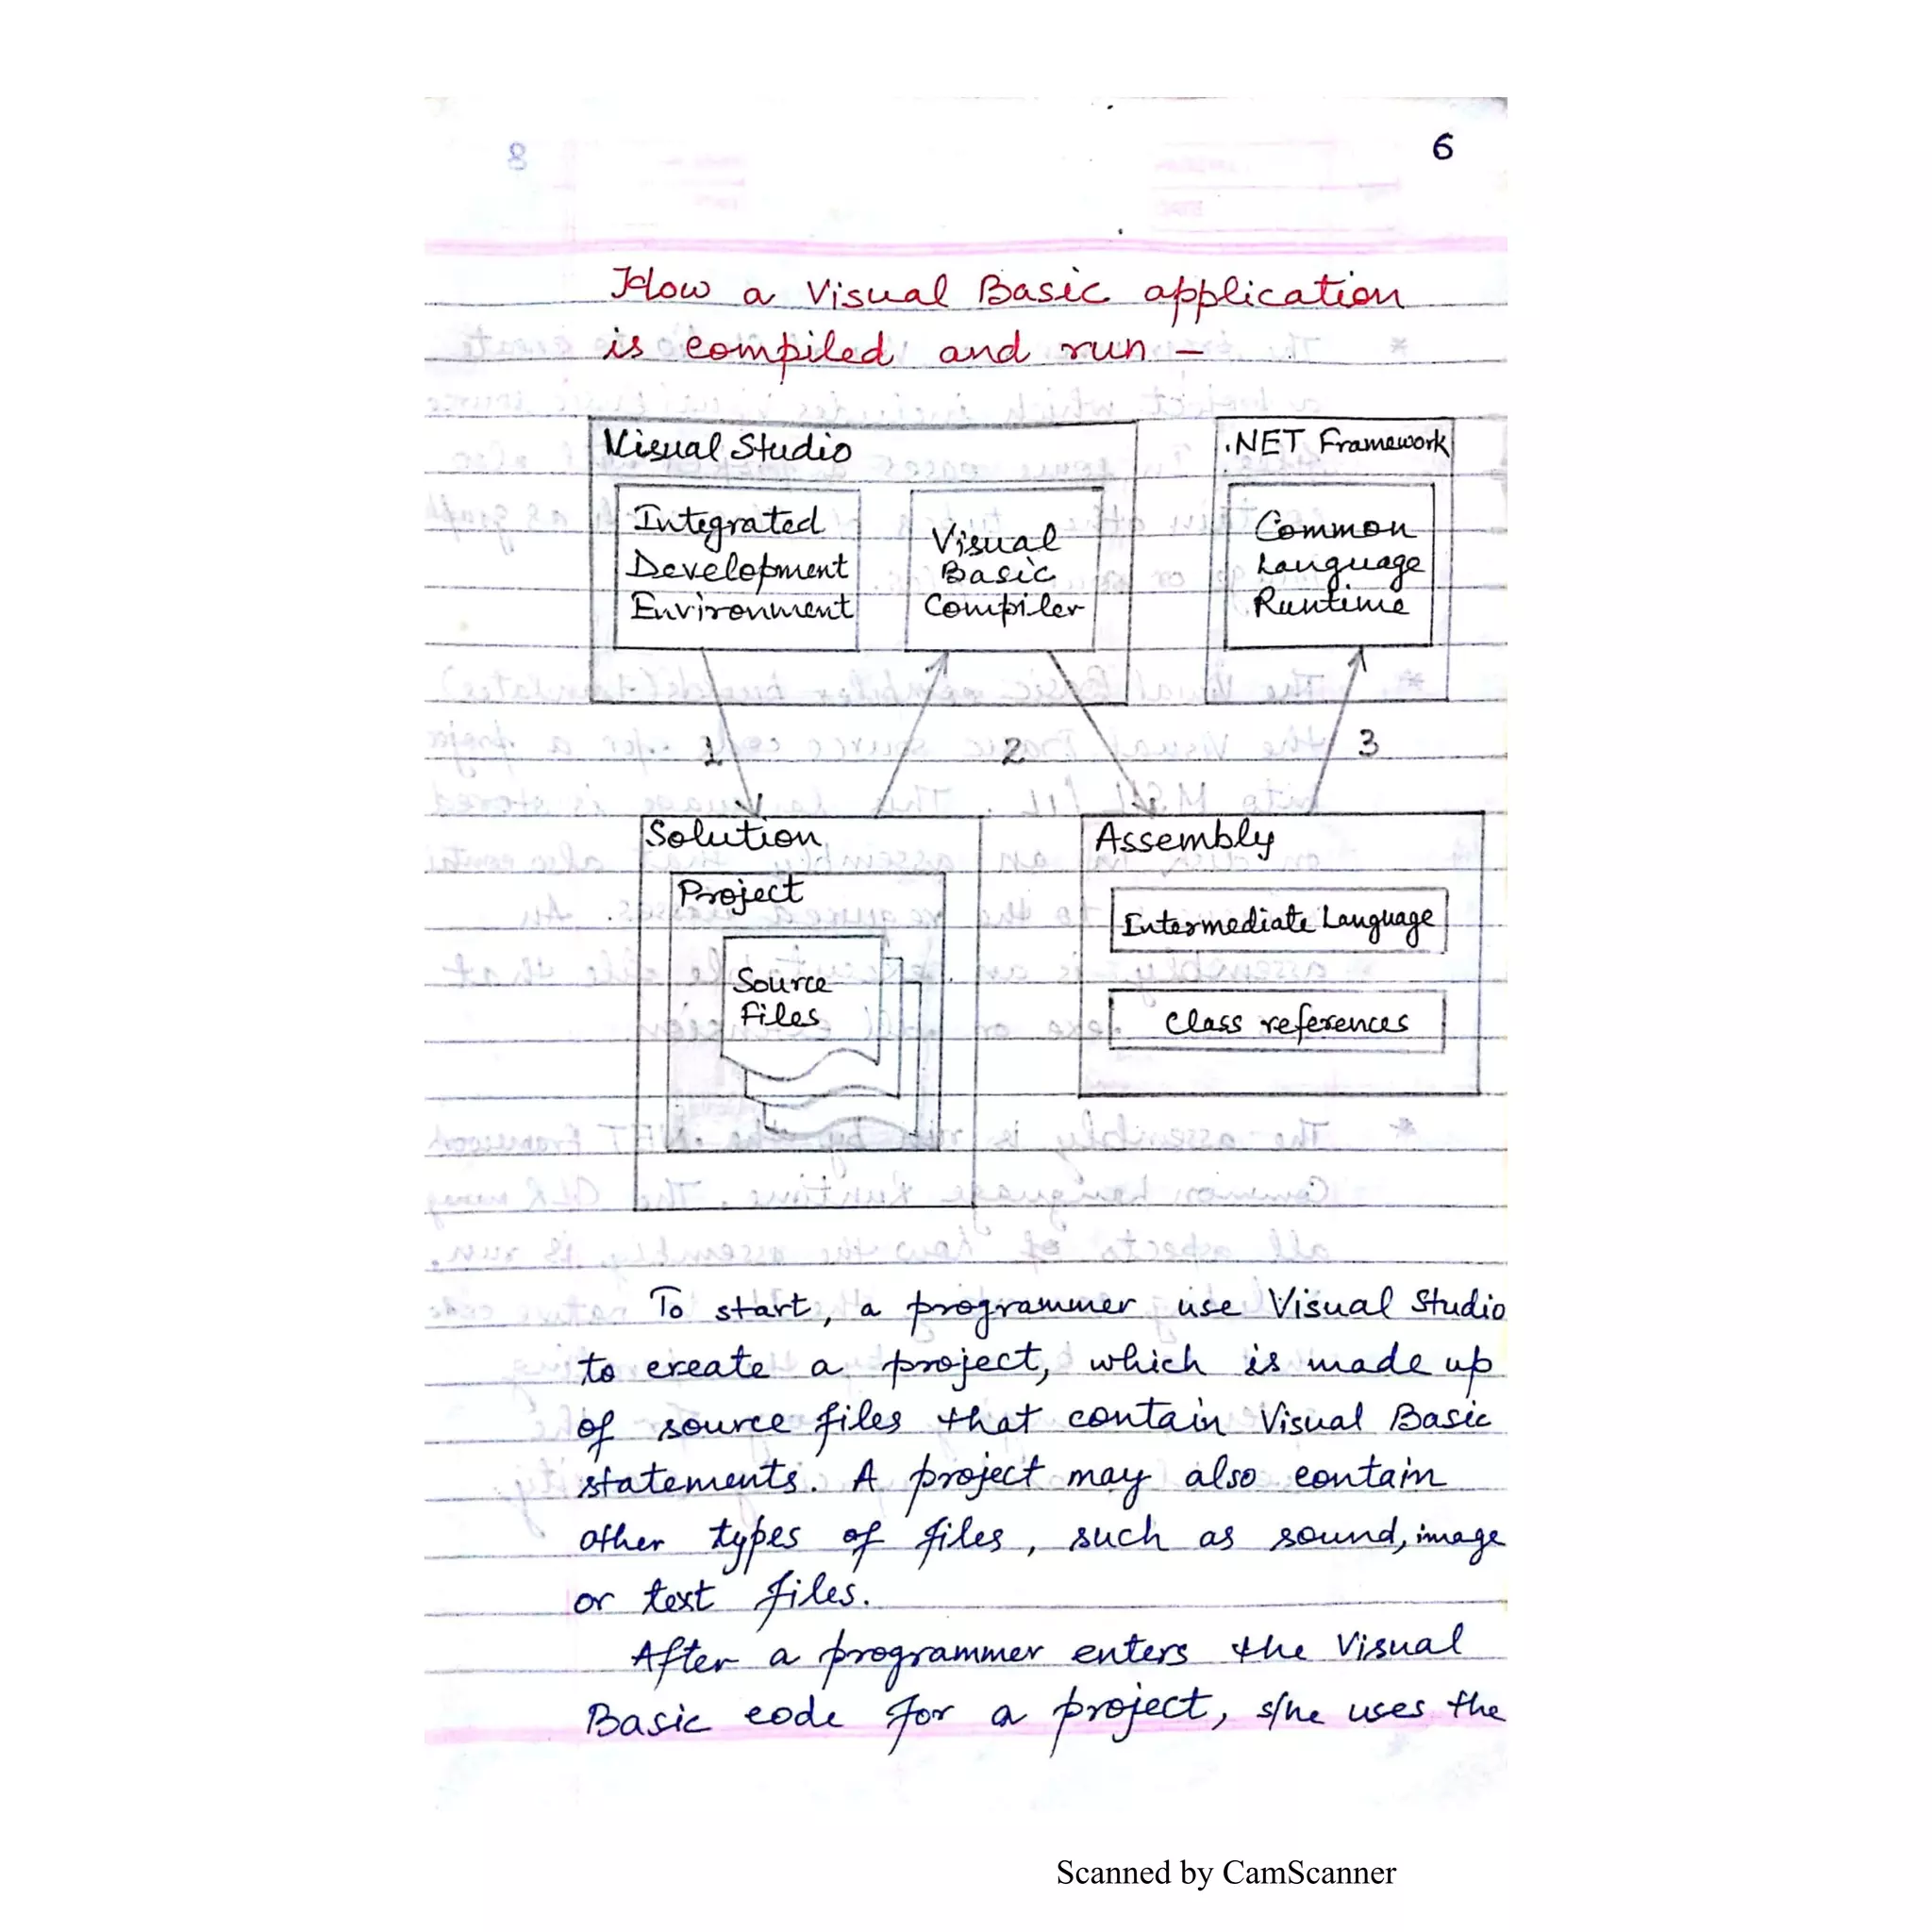 6
8
How a Visual Basic application
is compiled and run -
Visual Studio
.NET Framework
Integrated
Development
Environment
Visual
Basic
Compiler
Common
Language
Runtime
1
2
3
Solution
Project
Source
Files
Assembly
Intermediate Language
Class references
To start, a programmer use Visual Studio
to create a project, which is made up
of source files that contain Visual Basic
statements. A project may also contain
other types of files, such as sound, image
or text files.
After a programmer enters the Visual
Basic code for a project, s/he uses the
Scanned by CamScanner